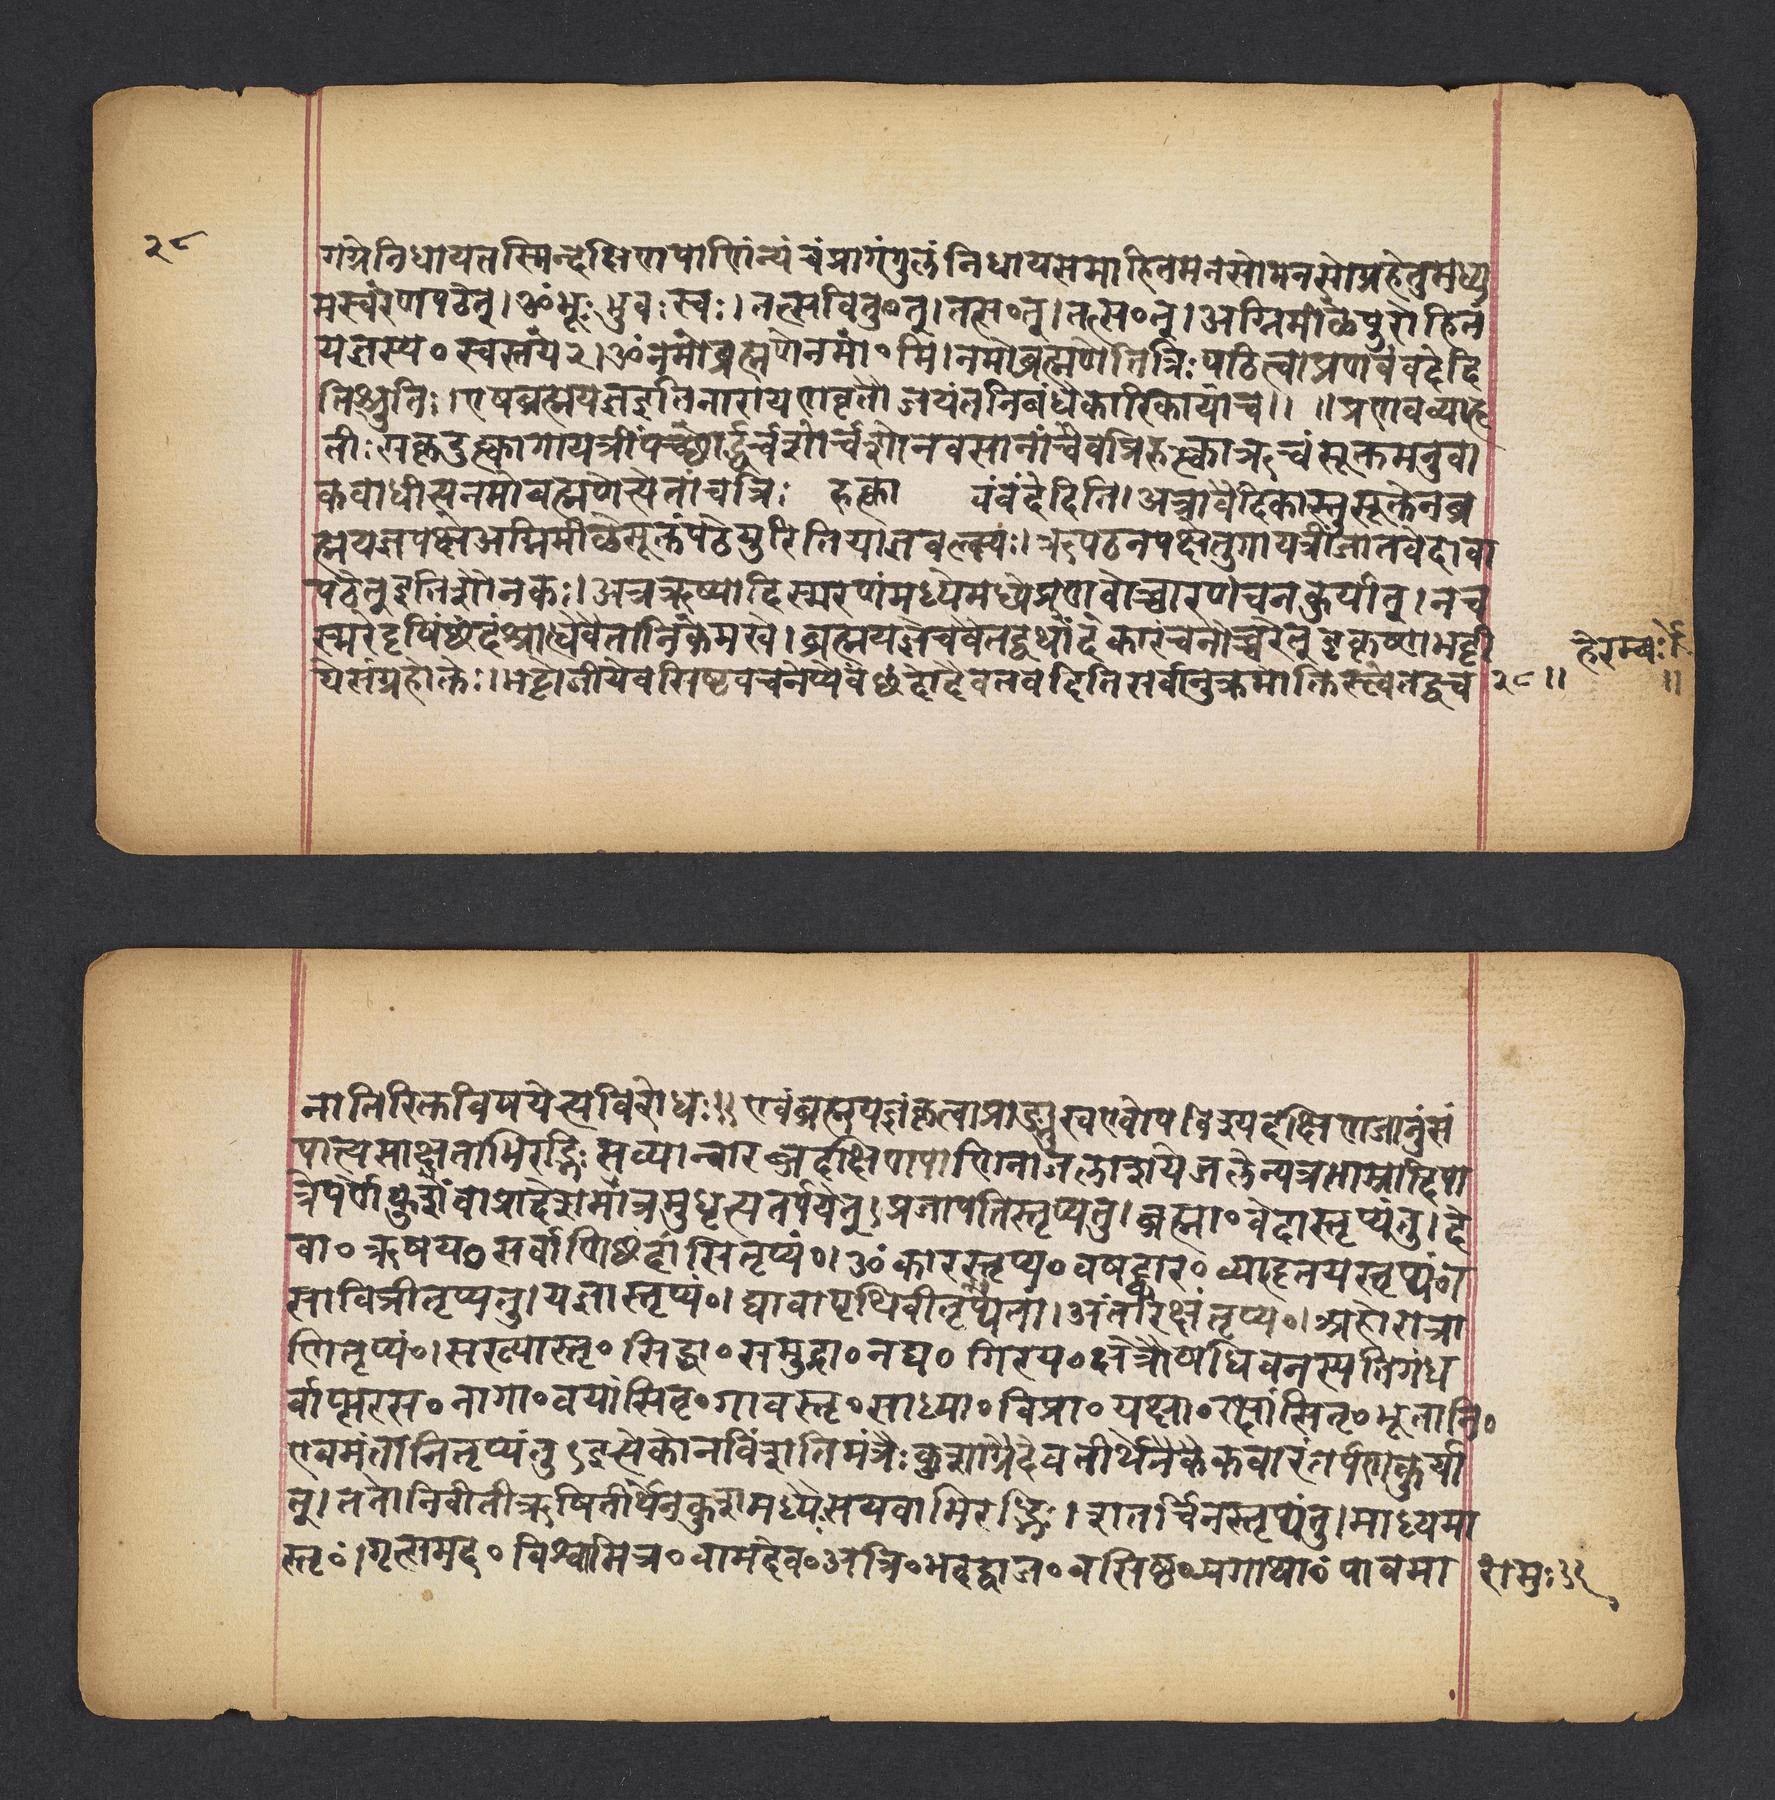 २८
गग्रेनिधायतस्मिन्दक्षिणपाणिंन्यंचंप्रागंगुलंनिधायसमाहितमनसोमनसोप्रहेतुमध्य
मस्वरेणपठेत्। ॐभूःभुवःस्वः। तत्सवितु०त्। तत्स०त्। तत्स०त्। अग्निमीळेपुरोहितं
यज्ञस्य० स्वस्तये२। ॐनमोब्रह्मणेनमो०मि। नमोब्रह्मणेतित्रिःपठित्वाप्रणवंवदेदि
तिश्रुतिः। एषब्रह्मयज्ञइतिनारायणवृत्तौजयंतनिबंधेकारिकायांच।। ॥प्रणवव्याहृ
तीःसकृदुक्त्वागायत्रींपच्छोर्द्धर्चशोर्चशोनवसानांचैवत्रिरुक्त्वाऋचंसूक्तमनुवा
कवाधीत्यनमोब्रह्मणेत्येतांचत्रिः हत्का वंवदेदिति। अत्रावैदिकास्तुसूक्तेनब्र
ह्मयज्ञपक्षेअग्निमीळेसूक्तंपठेयुरितियाज्ञवल्क्यः। ऋक्पठनपक्षेतुगायत्रींजातवेदोवा
पठेत्इतिशौनकः। अत्रऋष्यादिस्मरणंमध्येमध्येप्रणवोच्चारणंचनकुर्यात्। नच
स्मरेदृषिंछंदःश्राद्धेवैतानिकेमखे। ब्रह्मयज्ञेचवैतद्वथोंकारंचनोच्चरेत्इकृष्णभट्टी
येसंग्रहोक्तेः। भट्टोजीयेवसिष्ठवचनेप्येवंछंदोदैवतवदितिसर्वानुक्रमोक्तिस्त्वेतद्वच
हेरम्बः
२८॥ ॥
नातिरिक्तविषयेत्यविरोधः॥ एवंब्रह्मयज्ञंकृत्वाप्राङ्मुखएवोपविश्यदक्षिणजानुंसं
पात्यसाक्षताभिरद्भिःसव्यान्वारब्धदक्षिणपाणिनाजलाशयेजलेन्यत्रताम्रादिपा
त्रेपर्णेकुशेवाप्रादेशमात्रमुधृत्यतर्पयेत्। प्रजापतिस्तृप्यतु। ब्रह्मा०वेदास्तृप्यंतु। दे
वा० ऋषय० सर्वाणिछंदांसितृप्यं०। ॐकारस्तृप्य० वषट्कार० व्याहृतयस्तृप्यं०।
सावित्रीतृप्यतु। यज्ञास्तृप्यं०। द्यावापृथिवीतृप्येतां। अंतरिक्षंतृप्य०। अहोरात्रा
णितृप्यं०। सख्यास्तृ० सिद्धा० समुद्रा० नद्य० गिरय० क्षेत्रौषधिवनस्पतिगंध
र्वाप्सरस० नागा० वयांसितृ० गावस्तृ० साध्या० विप्रा० यक्षा० रक्षांसितृ० भूतानि०
एवमंतानितृप्यंतुइत्येकोनविंशतिमंत्रैःकुशाग्रैदेवतीर्थेनैकैकवारंतर्पणंकुर्या
त्। ततोनिवीतीऋषितीर्थेनकुशमध्यैःसयवाभिरद्भिः। शतर्चिनस्तृप्यंतु। माध्यमा
स्तृ०ं। गृत्समद० विश्वामित्र० वामदेव० अत्रि० भरद्वाज० वसिष्ठ० प्रगाथा०ं पावमा
रामः॥